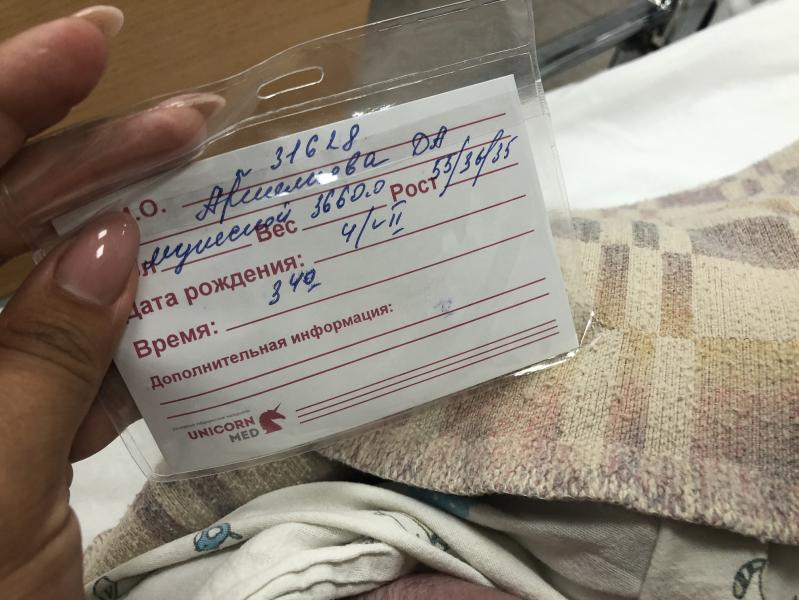 31628
.И.О. ДА
мужской Вес 3660.0 Рост 53/36/35
Дата рождения: 4/VII
Время: 3 40
Дополнительная информация:
UNICORN
MED